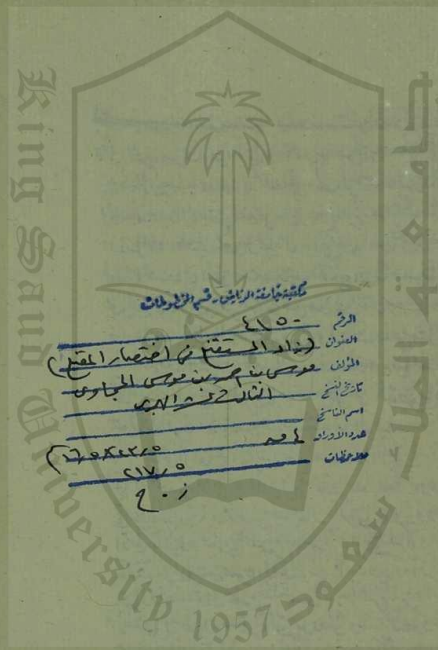 King Saud University
جامعة الملك سعود
1957
مكتبة جامعة الرياض - قسم المخطوطات
الرقم ٤١٥٠
العنوان (زاد المستقنع في اختصار المقنع)
المؤلف موسى بن أحمد بن موسى الحجاوي
تاريخ النسخ الثالث عشر الهجري
اسم الناسخ
عدد الأوراق
ملاحظات
٢١٧٫٥
ز. ح